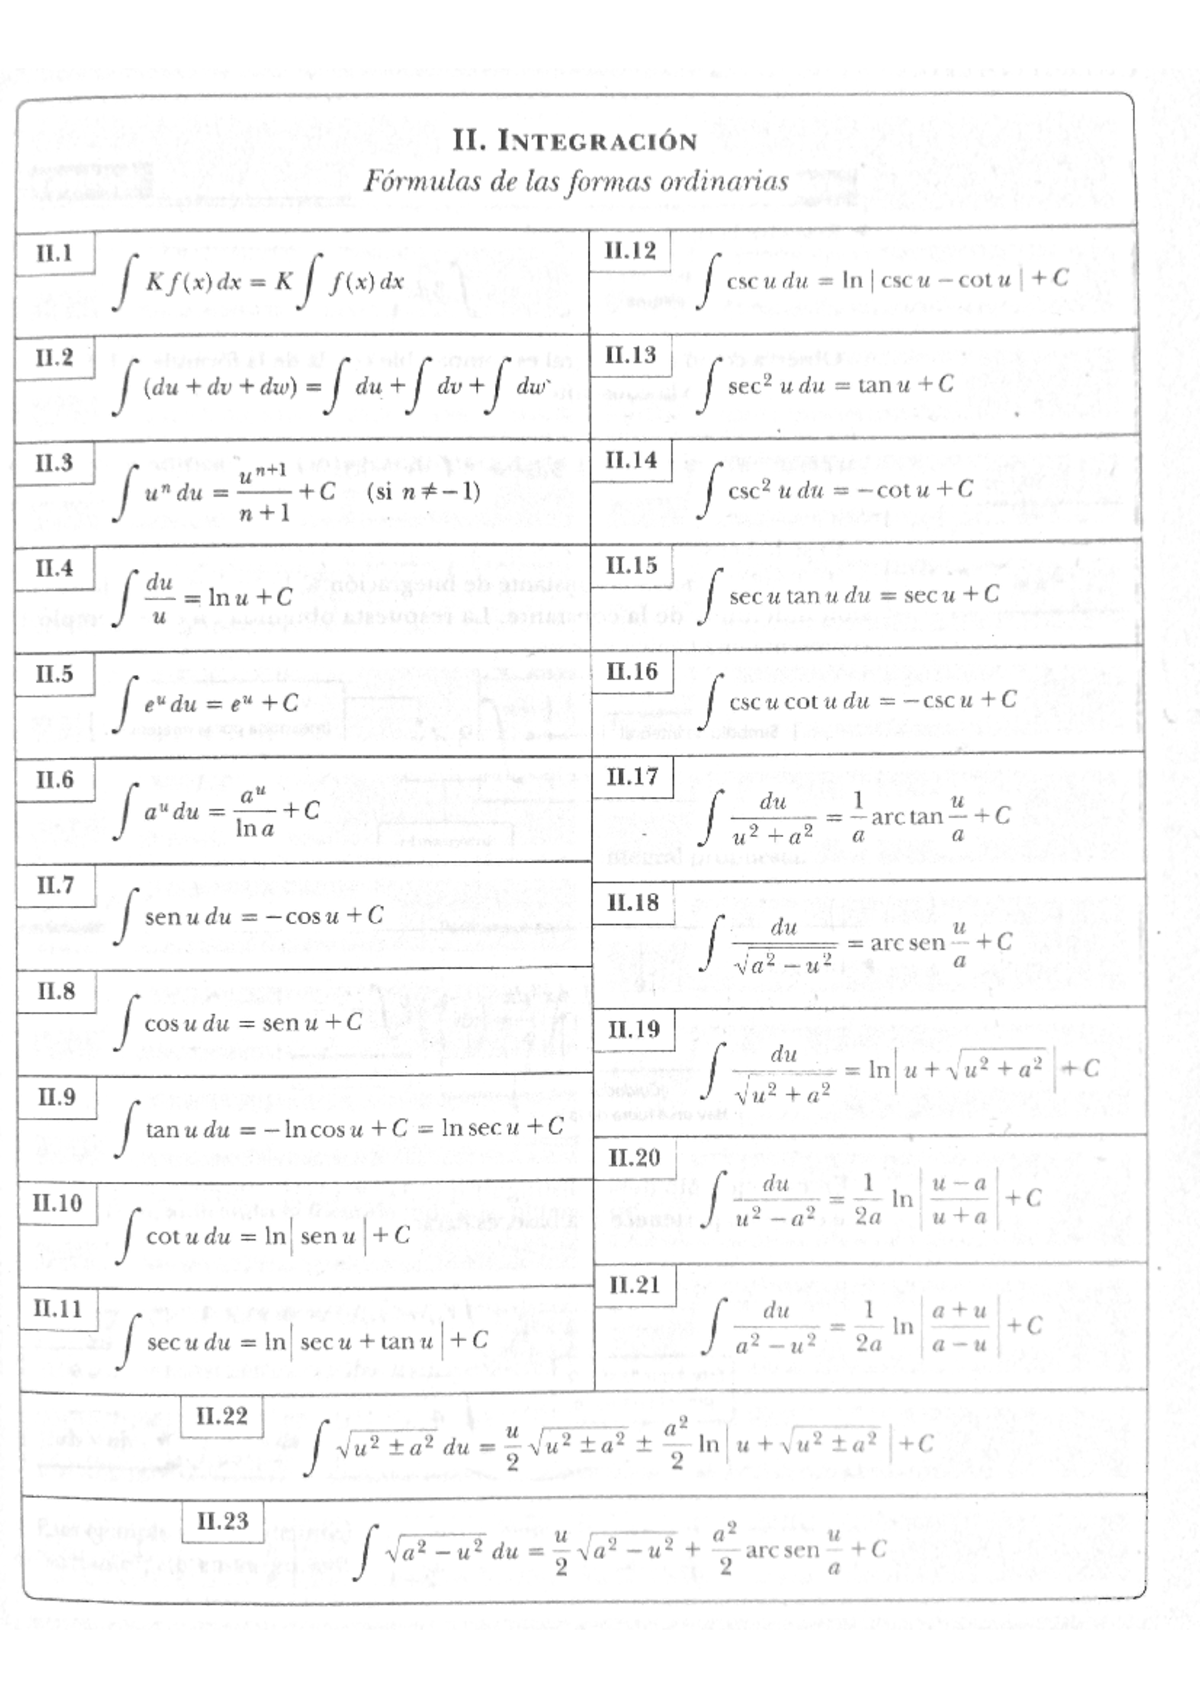 II. INTEGRACIÓN
Fórmulas de las formas ordinarias
II.1
∫ K f(x) dx = K ∫ f(x) dx
II.2
∫ (du + dv + dw) = ∫ du + ∫ dv + ∫ dw
II.3
∫ uⁿ du = uⁿ⁺¹/(n + 1) + C (si n ≠ −1)
II.4
∫ du/u = ln u + C
II.5
∫ eᵘ du = eᵘ + C
II.6
∫ aᵘ du = aᵘ/ln a + C
II.7
∫ sen u du = −cos u + C
II.8
∫ cos u du = sen u + C
II.9
∫ tan u du = − ln cos u + C = ln sec u + C
II.10
∫ cot u du = ln| sen u | + C
II.11
∫ sec u du = ln| sec u + tan u | + C
II.12
∫ csc u du = ln | csc u − cot u | + C
II.13
∫ sec² u du = tan u + C
II.14
∫ csc² u du = −cot u + C
II.15
∫ sec u tan u du = sec u + C
II.16
∫ csc u cot u du = −csc u + C
II.17
∫ du/(u² + a²) = 1/a arc tan u/a + C
II.18
∫ du/√(a² − u²) = arc sen u/a + C
II.19
∫ du/√(u² + a²) = ln| u + √(u² + a²) | + C
II.20
∫ du/(u² − a²) = 1/2a ln | (u − a)/(u + a) | + C
II.21
∫ du/(a² − u²) = 1/2a ln | (a + u)/(a − u) | + C
II.22
∫ √(u² ± a²) du = u/2 √(u² ± a²) ± a²/2 ln| u + √(u² ± a²) | + C
II.23
∫ √(a² − u²) du = u/2 √(a² − u²) + a²/2 arc sen u/a + C